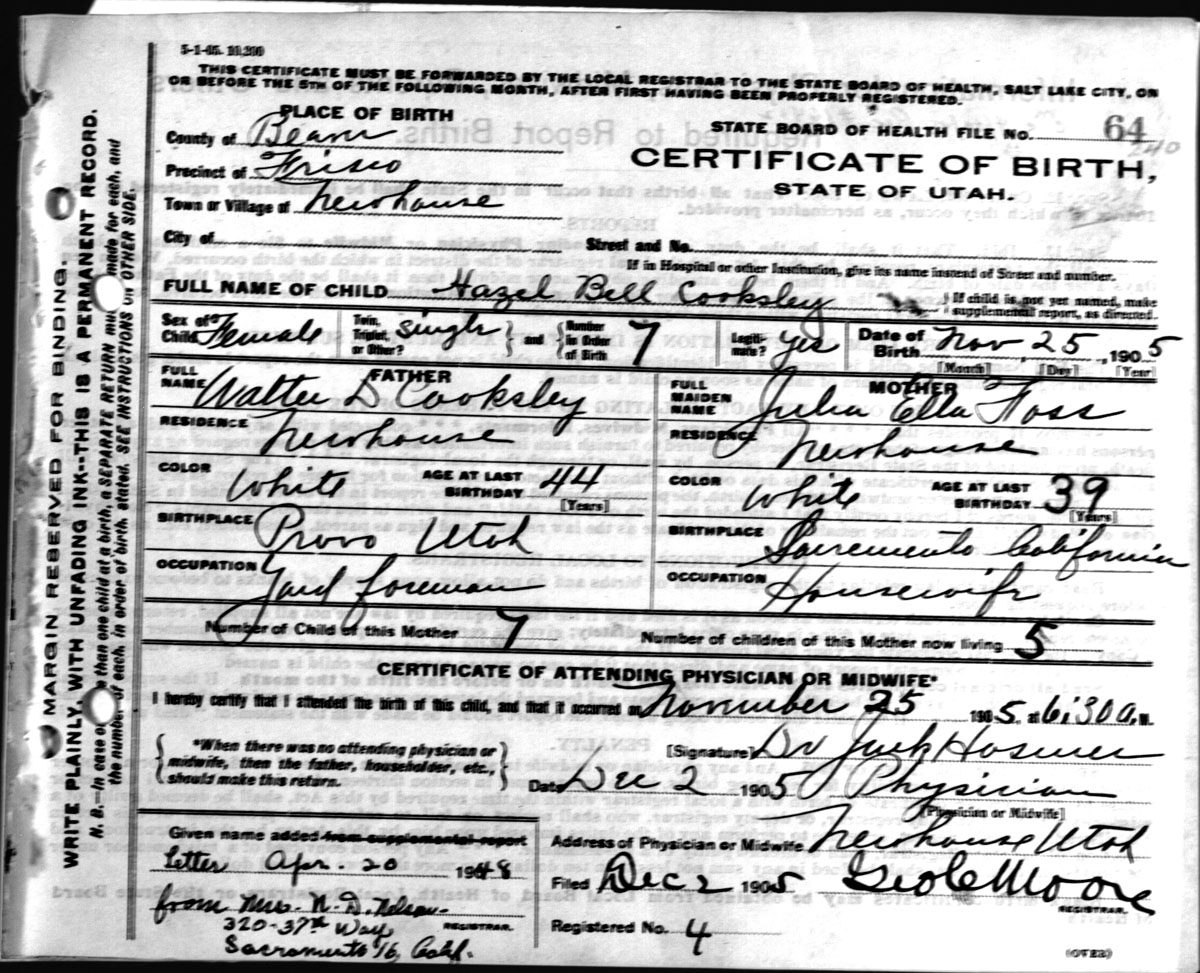 5-1-05. 10,200
THIS CERTIFICATE MUST BE FORWARDED BY THE LOCAL REGISTRAR TO THE STATE BOARD OF HEALTH, SALT LAKE CITY, ON
OR BEFORE THE 5TH OF THE FOLLOWING MONTH, AFTER FIRST HAVING BEEN PROPERLY REGISTERED.
PLACE OF BIRTH
County of Beaver
Precinct of Frisco
Town or Village of Newhouse
STATE BOARD OF HEALTH FILE No. 64
240
CERTIFICATE OF BIRTH,
STATE OF UTAH.
City of Street and No.
If in Hospital or other Institution, give its name instead of Street and number.
FULL NAME OF CHILD Hazel Bell Cooksley
If child is not yet named, make
supplemental report, as directed.
Sex of Child Female Twin, Triplet, or Other? single and Number in Order of Birth 7 Legitimate? yes Date of Birth Nov, 25, 1905
[Month] [Day] [Year]
FATHER
FULL NAME Walter D Cooksley
MOTHER
FULL MAIDEN NAME Julia Ella Foss
RESIDENCE Newhouse RESIDENCE Newhouse
COLOR White AGE AT LAST BIRTHDAY 44 [Years] COLOR White AGE AT LAST BIRTHDAY 39 [Years]
BIRTHPLACE Provo Utah BIRTHPLACE Sacremento California
OCCUPATION Yard foreman OCCUPATION Housewife
Number of Child of this Mother 7 Number of children of this Mother now living 5
CERTIFICATE OF ATTENDING PHYSICIAN OR MIDWIFE*
I hereby certify that I attended the birth of this child, and that it occurred on November 25 1905, at 6:30 a.M.
*When there was no attending physician or
midwife, then the father, householder, etc.,
should make this return.
[Signature] Dr Hosmer
Date Dec 2 1905 Physician
[Physician or Midwife]
Given name added from supplemental report
letter Apr. 20 1948
from Mrs. N. D. Nelson
REGISTRAR.
320-37th Way
Sacramento 16, Calif.
Address of Physician or Midwife Newhouse Utah
Filed Dec 2 1905 Geo C Moore
REGISTRAR.
Registered No. 4
(OVER)
MARGIN RESERVED FOR BINDING.
WRITE PLAINLY, WITH UNFADING INK--THIS IS A PERMANENT RECORD.
N. B.--In case of more than one child at a birth, a SEPARATE RETURN must be made for each, and
the number of each, in order of birth, stated. SEE INSTRUCTIONS ON OTHER SIDE.